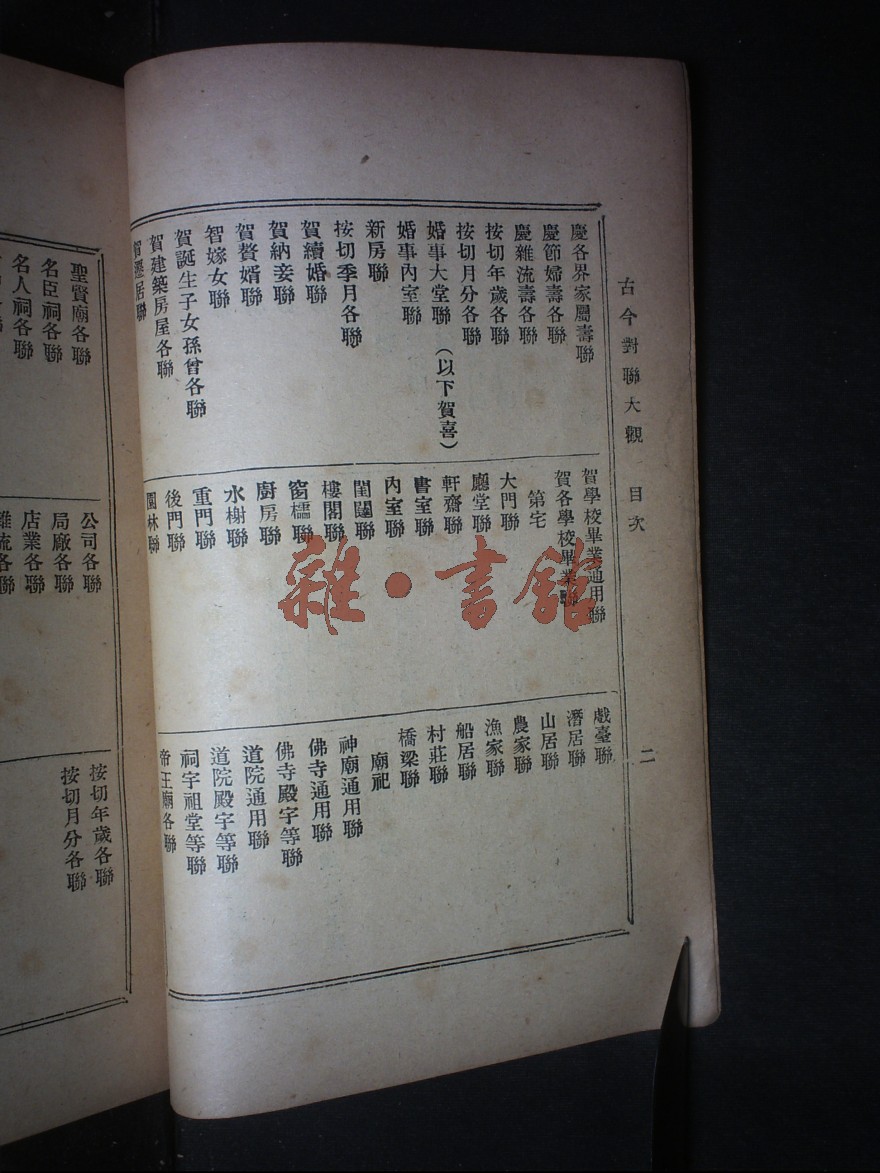 古今對聯大觀 目次
二
慶各界家屬壽聯
慶節婦壽各聯
慶雜流壽各聯
按切年歲各聯
按切月分各聯
婚事大堂聯(以下賀喜)
婚事內室聯
新房聯
按切季月各聯
賀續婚聯
賀納妾聯
賀贅婿聯
智嫁女聯
賀誕生子女孫曾各聯
賀建築房屋各聯
賀遷居聯
賀學校畢業通用聯
賀各學校畢業聯
第宅
大門聯
廳堂聯
軒齋聯
書室聯
內室聯
閨闥聯
樓閣聯
窗櫺聯
廚房聯
水榭聯
重門聯
後門聯
園林聯
戲臺聯
潛居聯
山居聯
農家聯
漁家聯
船居聯
村莊聯
橋梁聯
廟祀
神廟通用聯
佛寺通用聯
佛寺殿宇等聯
道院通用聯
道院殿宇等聯
祠宇祖堂等聯
帝王廟各聯
聖賢廟各聯
名臣祠各聯
名人祠各聯
公司各聯
局廠各聯
店業各聯
雜流各聯
按切年歲各聯
按切月分各聯
雜·書館